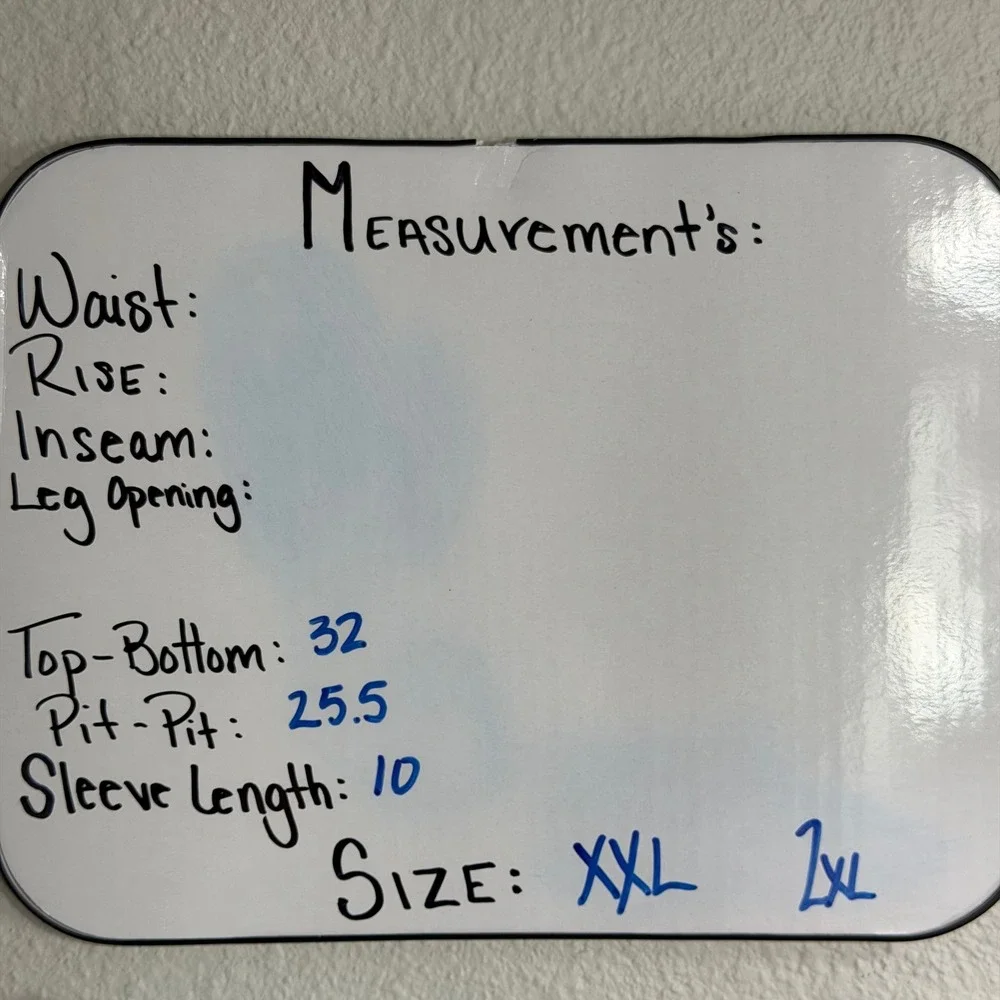 MEASurement's:
Waist:
RISE:
Inseam:
Leg Opening:
Top-Bottom: 32
Pit-Pit: 25.5
Sleeve Length: 10
SIZE: XXL 2XL